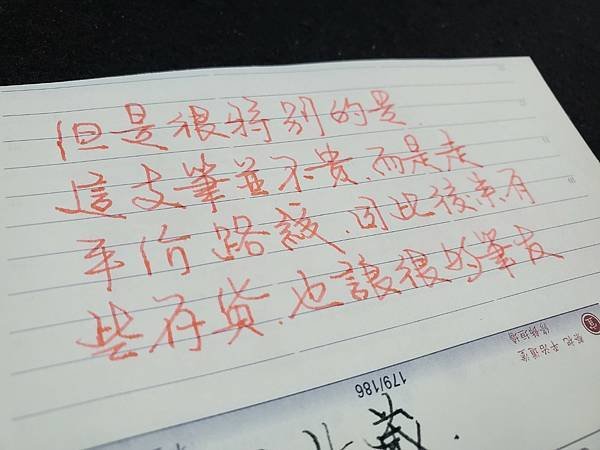 但是很特别的是
這支筆並不贵.而是走
平价路該.因此後来有
些存货.也讓很的筆友
179/186
歲.